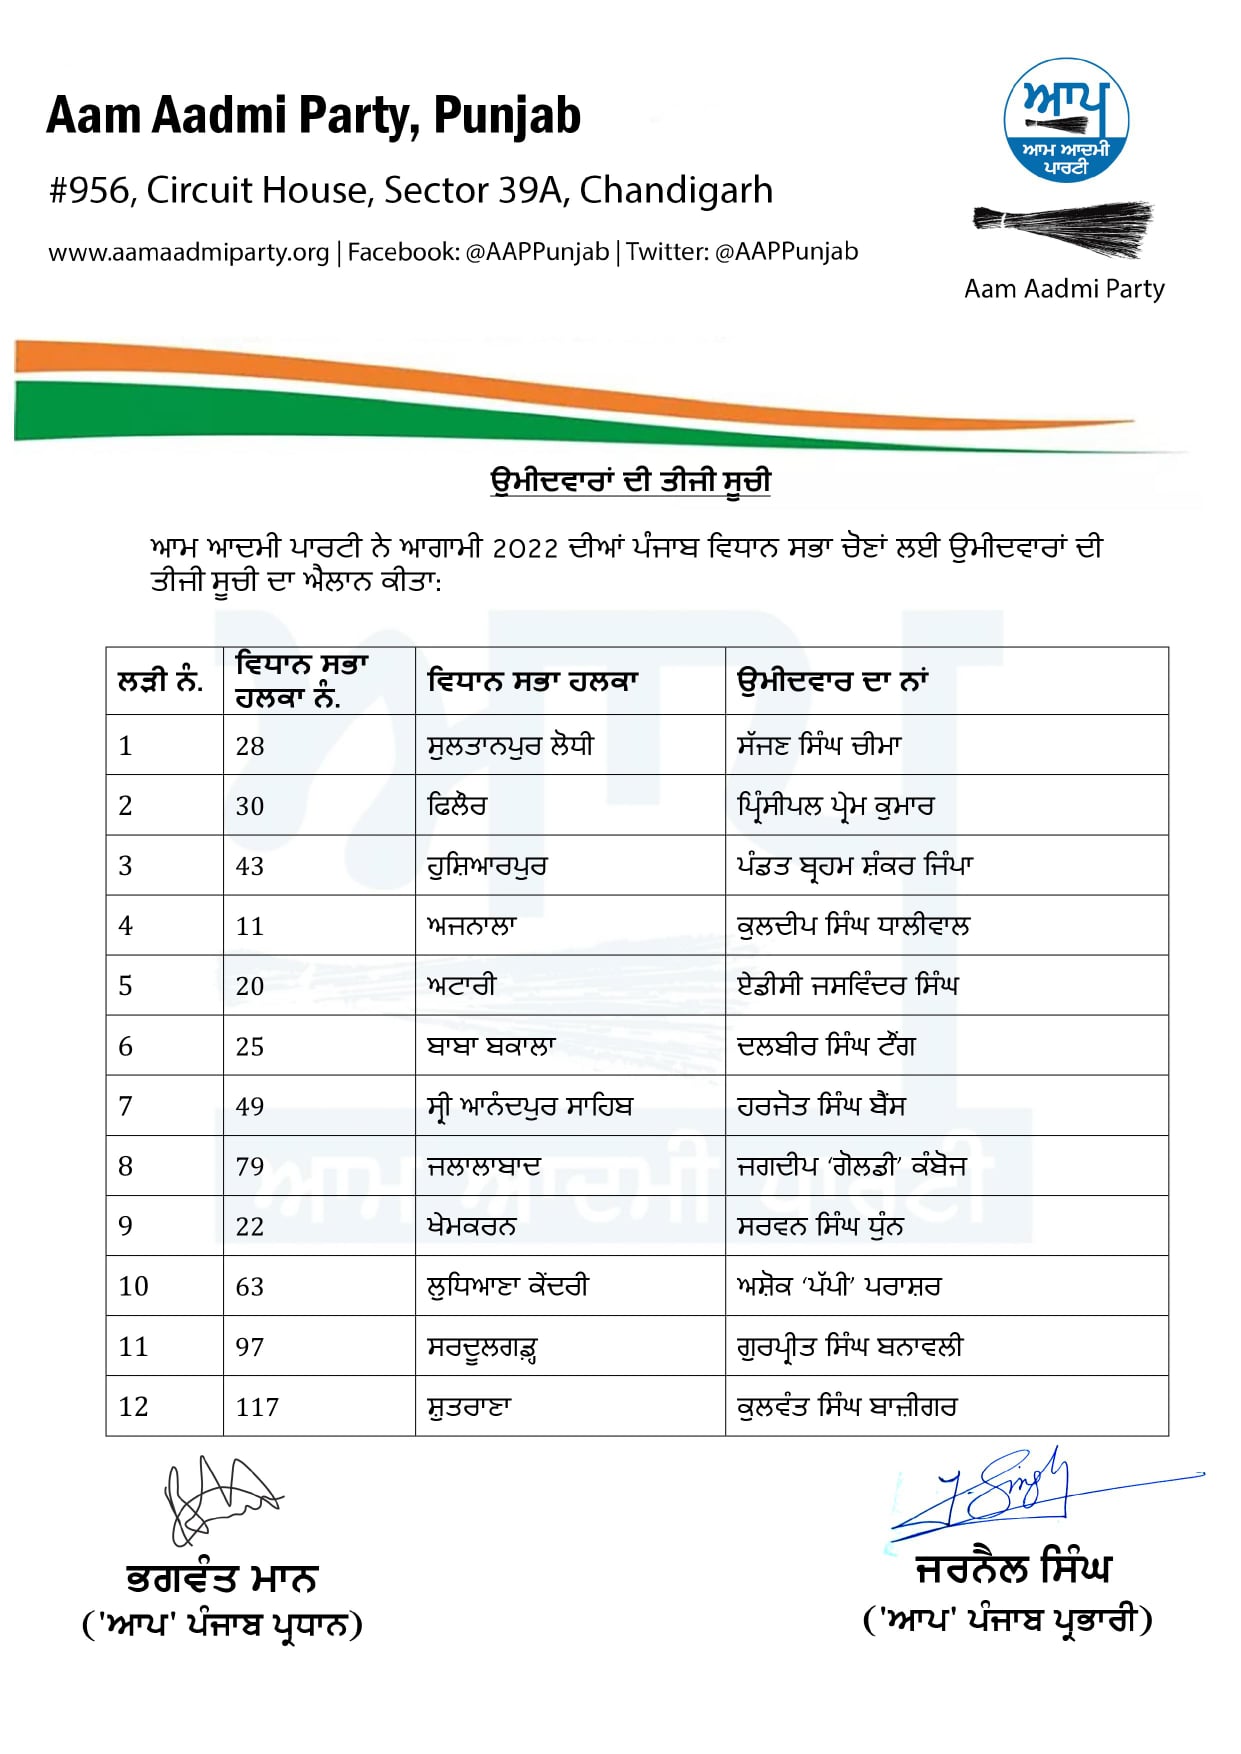 Aam Aadmi Party, Punjab
#956, Circuit House, Sector 39A, Chandigarh
www.aamaadmiparty.org | Facebook: @AAPPunjab | Twitter: @AAPPunjab
ਆਪ
ਆਮ ਆਦਮੀ
ਪਾਰਟੀ
Aam Aadmi Party
ਉਮੀਦਵਾਰਾਂ ਦੀ ਤੀਜੀ ਸੂਚੀ
ਆਮ ਆਦਮੀ ਪਾਰਟੀ ਨੇ ਆਗਾਮੀ 2022 ਦੀਆਂ ਪੰਜਾਬ ਵਿਧਾਨ ਸਭਾ ਚੋਣਾਂ ਲਈ ਉਮੀਦਵਾਰਾਂ ਦੀ
ਤੀਜੀ ਸੂਚੀ ਦਾ ਐਲਾਨ ਕੀਤਾ:
ਲੜੀ ਨੰ. ਵਿਧਾਨ ਸਭਾ ਹਲਕਾ ਨੰ. ਵਿਧਾਨ ਸਭਾ ਹਲਕਾ ਉਮੀਦਵਾਰ ਦਾ ਨਾਂ
1 28 ਸੁਲਤਾਨਪੁਰ ਲੋਧੀ ਸੱਜਣ ਸਿੰਘ ਚੀਮਾ
2 30 ਫਿਲੌਰ ਪ੍ਰਿੰਸੀਪਲ ਪ੍ਰੇਮ ਕੁਮਾਰ
3 43 ਹੁਸ਼ਿਆਰਪੁਰ ਪੰਡਤ ਬ੍ਰਹਮ ਸ਼ੰਕਰ ਜਿੰਪਾ
4 11 ਅਜਨਾਲਾ ਕੁਲਦੀਪ ਸਿੰਘ ਧਾਲੀਵਾਲ
5 20 ਅਟਾਰੀ ਏਡੀਸੀ ਜਸਵਿੰਦਰ ਸਿੰਘ
6 25 ਬਾਬਾ ਬਕਾਲਾ ਦਲਬੀਰ ਸਿੰਘ ਟੌਂਗ
7 49 ਸ੍ਰੀ ਆਨੰਦਪੁਰ ਸਾਹਿਬ ਹਰਜੋਤ ਸਿੰਘ ਬੈਂਸ
8 79 ਜਲਾਲਾਬਾਦ ਜਗਦੀਪ ‘ਗੋਲਡੀ’ ਕੰਬੋਜ
9 22 ਖੇਮਕਰਨ ਸਰਵਨ ਸਿੰਘ ਧੁੰਨ
10 63 ਲੁਧਿਆਣਾ ਕੇਂਦਰੀ ਅਸ਼ੋਕ ‘ਪੱਪੀ’ ਪਰਾਸ਼ਰ
11 97 ਸਰਦੂਲਗੜ੍ਹ ਗੁਰਪ੍ਰੀਤ ਸਿੰਘ ਬਨਾਵਲੀ
12 117 ਸ਼ੁਤਰਾਣਾ ਕੁਲਵੰਤ ਸਿੰਘ ਬਾਜ਼ੀਗਰ
ਆਪ
ਆਮ ਆਦਮੀ ਪਾਰਟੀ
J. Singh
ਭਗਵੰਤ ਮਾਨ
('ਆਪ' ਪੰਜਾਬ ਪ੍ਰਧਾਨ)
ਜਰਨੈਲ ਸਿੰਘ
('ਆਪ' ਪੰਜਾਬ ਪ੍ਰਭਾਰੀ)